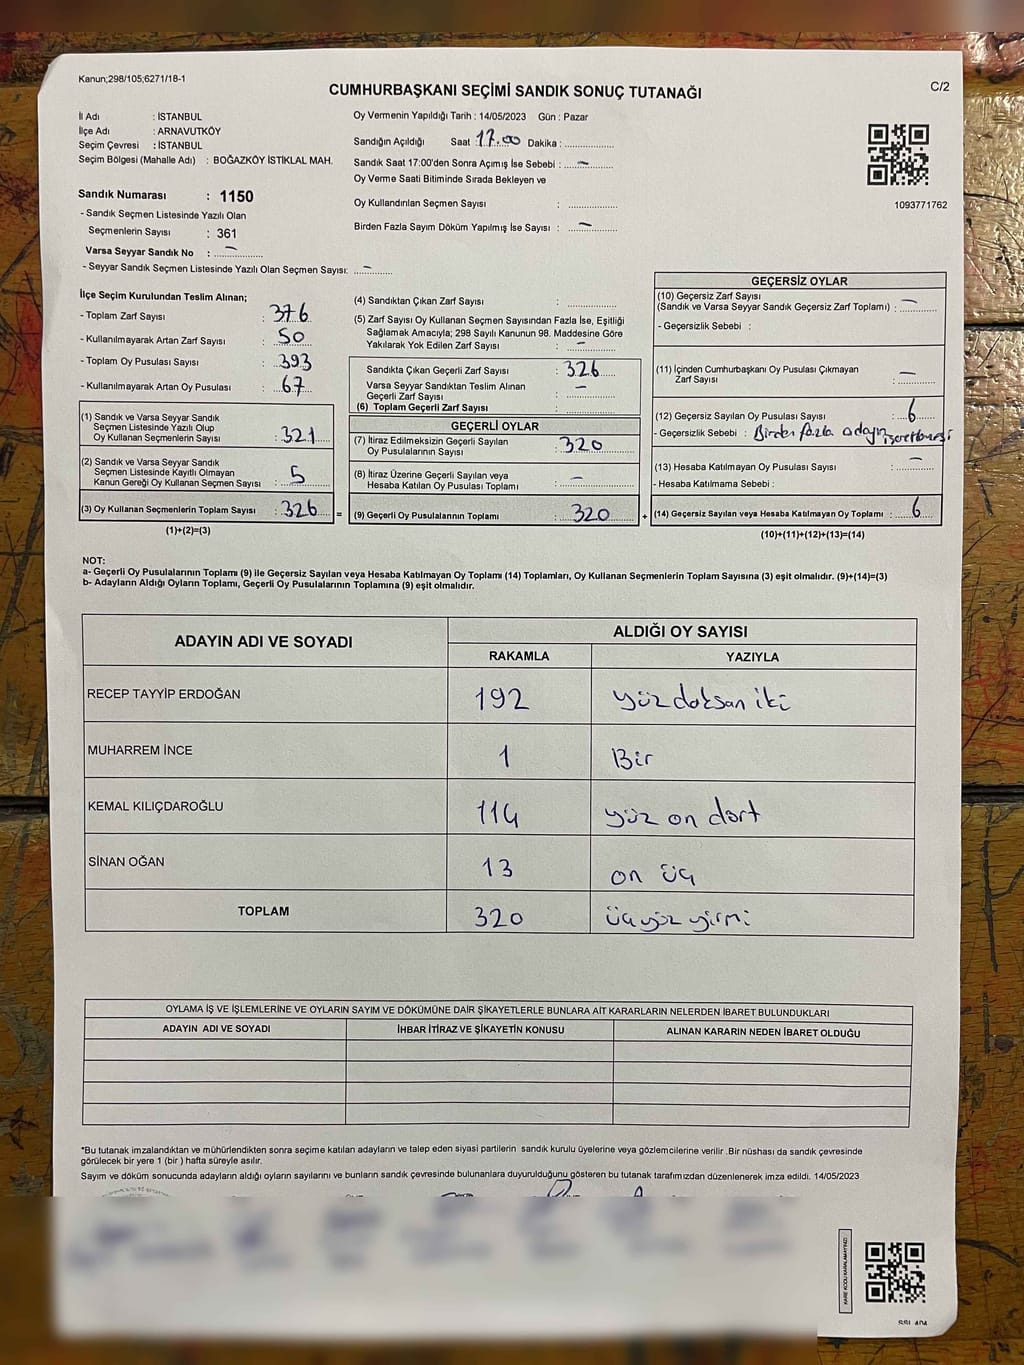 Kanun;298/105;6271/18-1
C/2
CUMHURBAŞKANI SEÇİMİ SANDIK SONUÇ TUTANAĞI
İl Adı : İSTANBUL
İlçe Adı : ARNAVUTKÖY
Seçim Çevresi : İSTANBUL
Seçim Bölgesi (Mahalle Adı) : BOĞAZKÖY İSTİKLAL MAH.
Sandık Numarası : 1150
- Sandık Seçmen Listesinde Yazılı Olan
Seçmenlerin Sayısı : 361
Varsa Seyyar Sandık No : —
- Seyyar Sandık Seçmen Listesinde Yazılı Olan Seçmen Sayısı: —
Oy Vermenin Yapıldığı Tarih : 14/05/2023 Gün : Pazar
Sandığın Açıldığı Saat : 17.00 Dakika :
Sandık Saat 17:00'den Sonra Açımış İse Sebebi : —
Oy Verme Saati Bitiminde Sırada Bekleyen ve
Oy Kullandırılan Seçmen Sayısı :
Birden Fazla Sayım Döküm Yapılmış İse Sayısı : —
1093771762
İlçe Seçim Kurulundan Teslim Alınan;
- Toplam Zarf Sayısı : 376
- Kullanılmayarak Artan Zarf Sayısı : 50
- Toplam Oy Pusulası Sayısı : 393
- Kullanılmayarak Artan Oy Pusulası : 67
(1) Sandık ve Varsa Seyyar Sandık
Seçmen Listesinde Yazılı Olup
Oy Kullanan Seçmenlerin Sayısı : 321
(2) Sandık ve Varsa Seyyar Sandık
Seçmen Listesinde Kayıtlı Olmayan
Kanun Gereği Oy Kullanan Seçmen Sayısı : 5
(3) Oy Kullanan Seçmenlerin Toplam Sayısı : 326 =
(1)+(2)=(3)
(4) Sandıktan Çıkan Zarf Sayısı :
(5) Zarf Sayısı Oy Kullanan Seçmen Sayısından Fazla İse, Eşitliği
Sağlamak Amacıyla; 298 Sayılı Kanunun 98. Maddesine Göre
Yakılarak Yok Edilen Zarf Sayısı : —
Sandıkta Çıkan Geçerli Zarf Sayısı : 326
Varsa Seyyar Sandıktan Teslim Alınan
Geçerli Zarf Sayısı : —
(6) Toplam Geçerli Zarf Sayısı :
GEÇERLİ OYLAR
(7) İtiraz Edilmeksizin Geçerli Sayılan
Oy Pusulalarının Sayısı : 320
(8) İtiraz Üzerine Geçerli Sayılan veya
Hesaba Katılan Oy Pusulası Toplamı : —
(9) Geçerli Oy Pusulalarının Toplamı : 320 +
GEÇERSİZ OYLAR
(10) Geçersiz Zarf Sayısı
(Sandık ve Varsa Seyyar Sandık Geçersiz Zarf Toplamı) : —
- Geçersizlik Sebebi :
(11) İçinden Cumhurbaşkanı Oy Pusulası Çıkmayan
Zarf Sayısı : —
(12) Geçersiz Sayılan Oy Pusulası Sayısı : 6
- Geçersizlik Sebebi : Birden fazla adayın işaretlenmesi
(13) Hesaba Katılmayan Oy Pusulası Sayısı : —
- Hesaba Katılmama Sebebi :
(14) Geçersiz Sayılan veya Hesaba Katılmayan Oy Toplamı : 6
(10)+(11)+(12)+(13)=(14)
NOT:
a- Geçerli Oy Pusulalarının Toplamı (9) ile Geçersiz Sayılan veya Hesaba Katılmayan Oy Toplamı (14) Toplamları, Oy Kullanan Seçmenlerin Toplam Sayısına (3) eşit olmalıdır. (9)+(14)=(3)
b- Adayların Aldığı Oyların Toplamı, Geçerli Oy Pusulalarının Toplamına (9) eşit olmalıdır.
ADAYIN ADI VE SOYADI
ALDIĞI OY SAYISI
RAKAMLA YAZIYLA
RECEP TAYYİP ERDOĞAN 192 yüz doksan iki
MUHARREM İNCE 1 Bir
KEMAL KILIÇDAROĞLU 114 yüz on dört
SİNAN OĞAN 13 on üç
TOPLAM 320 üçyüz yirmi
OYLAMA İŞ VE İŞLEMLERİNE VE OYLARIN SAYIM VE DÖKÜMÜNE DAİR ŞİKAYETLERLE BUNLARA AİT KARARLARIN NELERDEN İBARET BULUNDUKLARI
ADAYIN ADI VE SOYADI İHBAR İTİRAZ VE ŞİKAYETİN KONUSU ALINAN KARARIN NEDEN İBARET OLDUĞU
*Bu tutanak imzalandıktan ve mühürlendikten sonra seçime katılan adayların ve talep eden siyasi partilerin sandık kurulu üyelerine veya gözlemcilerine verilir .Bir nüshası da sandık çevresinde
görülecek bir yere 1 (bir ) hafta süreyle asılır.
Sayım ve döküm sonucunda adayların aldığı oyların sayılarını ve bunların sandık çevresinde bulunanlara duyurulduğunu gösteren bu tutanak tarafımızdan düzenlenerek imza edildi. 14/05/2023
KARE KODU KARALAMAYINIZ!